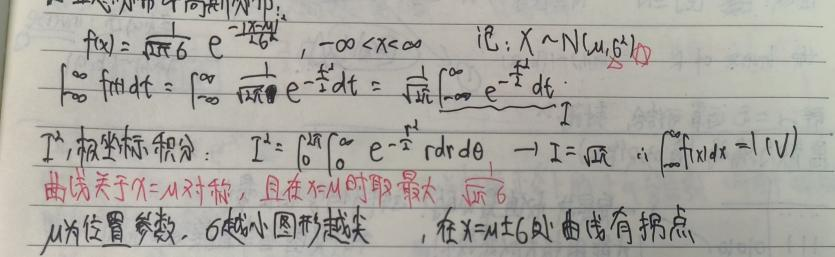 f(x) = 1/(√(2π) σ) e^(-(x-μ)²/(2σ²)) , -∞<x<∞ 记: X ~ N(μ,σ²)
∫_{-∞}^{∞} f(t)dt = ∫_{-∞}^{∞} 1/√(2π) e^(-t²/2) dt = 1/√(2π) ∫_{-∞}^{∞} e^(-t²/2) dt.
I
I², 极坐标积分: I² = ∫_0^{2π} ∫_0^{∞} e^(-r²/2) r dr dθ → I = √(2π) ∴ ∫_{-∞}^{∞} f(x)dx = 1 (√)
曲线关于x=μ对称, 且在x=μ时取最大 1/(√(2π) σ)
μ为位置参数, σ越小图形越尖 , 在x=μ±σ处曲线有拐点